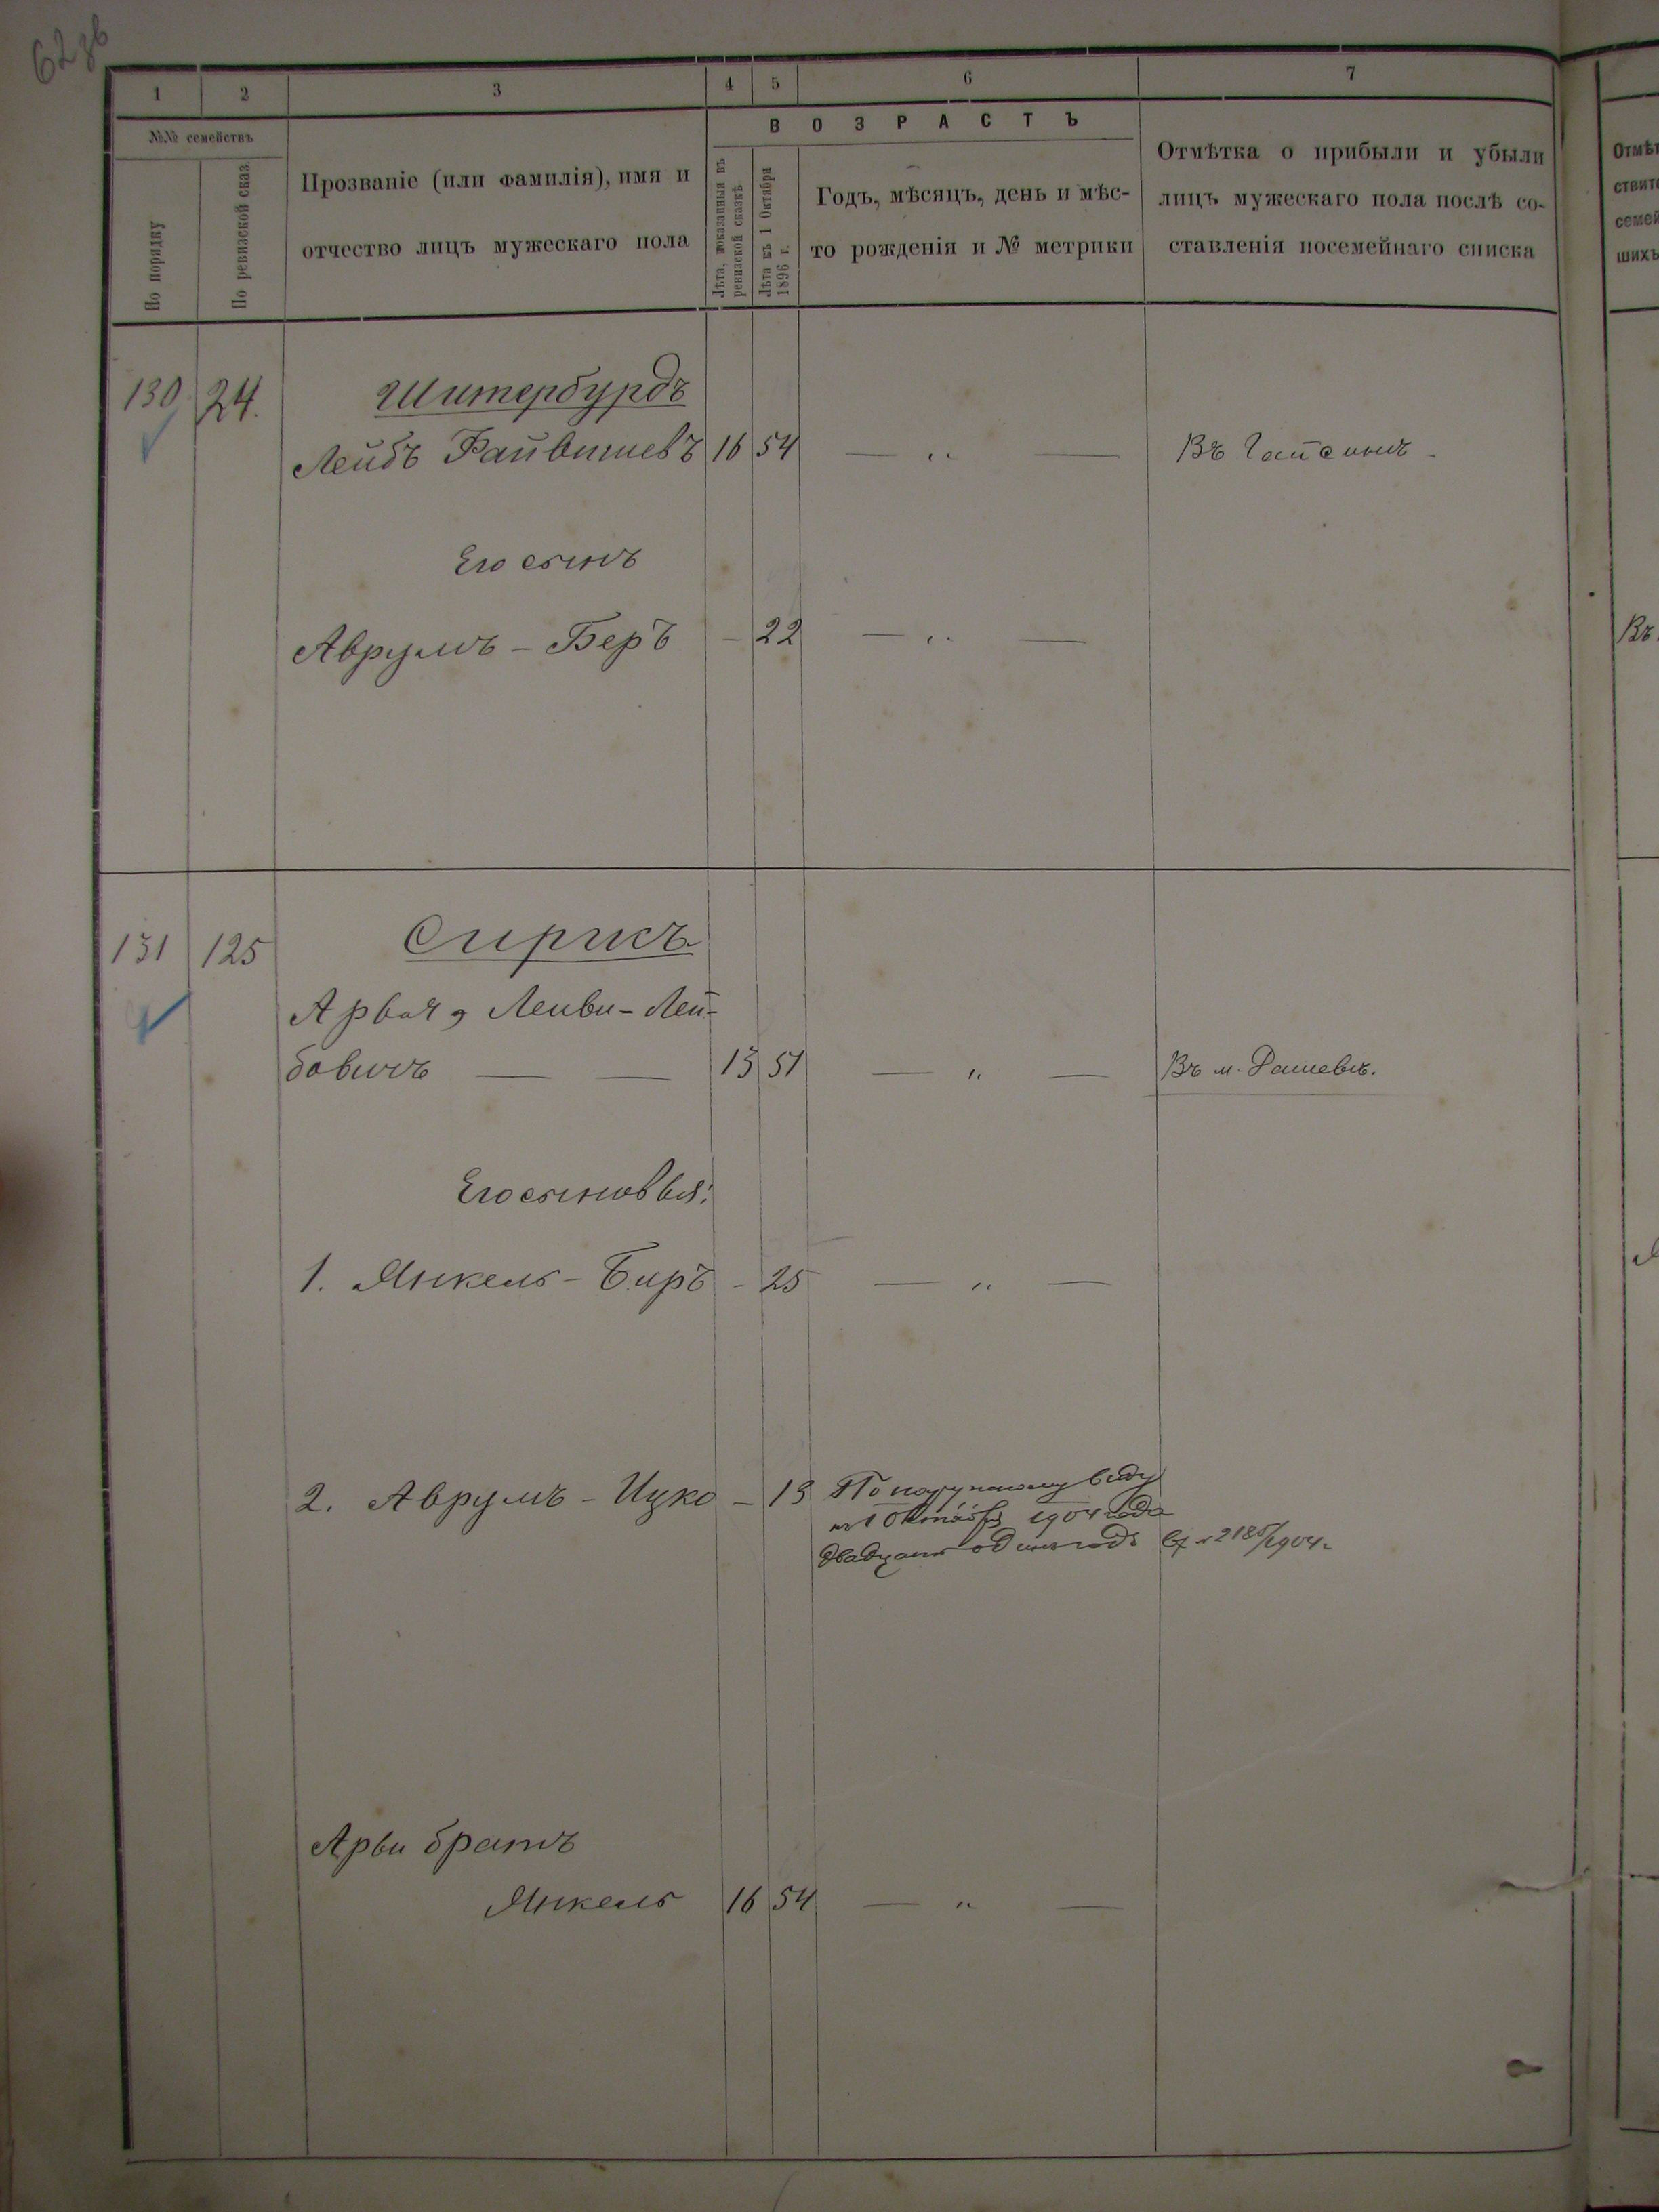 62 зв
1 2 3 4 5 6 7
№№ семействъ
По порядку
По ревизской сказ.
Прозваніе (или фамилія), имя и
отчество лицъ мужескаго пола
ВОЗРАСТЪ
Лѣта, показанныя въ
ревизской сказкѣ
Лѣта къ 1 Октября
1896 г.
Годъ, мѣсяцъ, день и мѣс-
то рожденія и № метрики
Отмѣтка о прибыли и убыли
лицъ мужескаго пола послѣ со-
ставленія посемейнаго списка
130 24. Шитербурдъ
Лейбъ Файвишевъ 16 54 — " — Въ Гайсинѣ
Его сынъ
Аврумъ - Беръ - 22 — " —
131 125 Сирикъ
Арья, Лейви - Лей-
бовичъ — — 13 51 — " — Въ м. Дашевѣ.
Его сыновья:
1. Янкель - Биръ - 25 — " —
2. Аврумъ - Ицко - 13 По наружному виду
к 1 Октября 1904 года
двадцать одинъ годъ № 2185/1904 г.
Арьи братъ
Янкель 16 54 — " —
Отмѣт
ствите
семей
шихъ
Въ